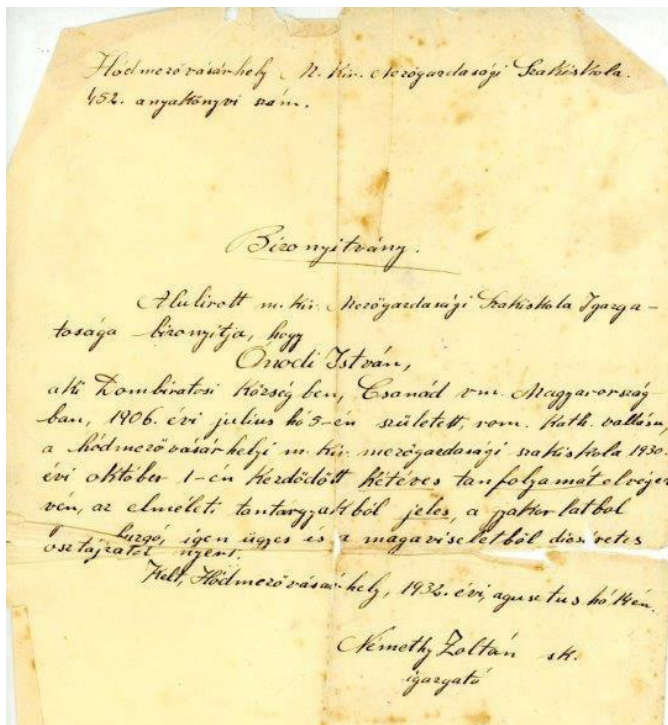 Hódmezővásárhely M. Kir. Mezőgazdasági Szakiskola.
452. anyakönyvi szám.
Bizonyitvány.
Alulirott m. kir. Mezőgazdasági Szakiskola Igazga-
tosága bizonyitja, hogy
Ónodi István,
aki Dombiratosi Község ben, Csanád vm. Magyarország-
ban, 1906. évi julius hó 5-én született, rom. kath. vallásu,
a hódmezővásárhelyi m. kir. mezőgazdasági szakiskola 1930.
évi október 1-én kezdődött kétéves tanfolyamát elvégez
vén, az elméleti tantárgyakból jeles, a gakorlatbol
buzgó, igen ügyes és a magaviseletből dicséretes
osztájzatot nyert.
Kelt, Hódmezővásárhely, 1932. évi, agusztus hó 14én.
Némethy Zoltán sk.
igazgató